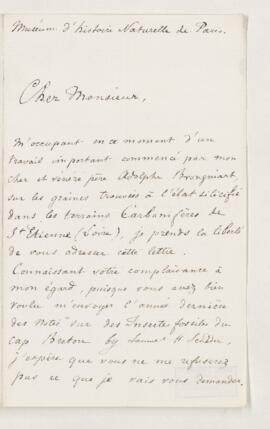 Muséum d'histoire Naturelle de Paris.
Cher Monsieur,
M'occupant en ce moment d'un
travail important commencé par mon
cher et vénéré père Adolphe Brongniart
sur les graines trouvées à l'état silicifié
dans les terrains Carbonifères de
St Etienne (Loire), je prends la liberté
de vous adresser cette lettre.
Connaissant votre complaisance à
mon égard, puisque vous avez bien
voulu m'envoyer l'année dernière
des Notes sur des Insectes fossiles du
cap Breton by Samel H Scudder,
j'espère que vous ne me refuserez
pas ce que je vais vous demander.